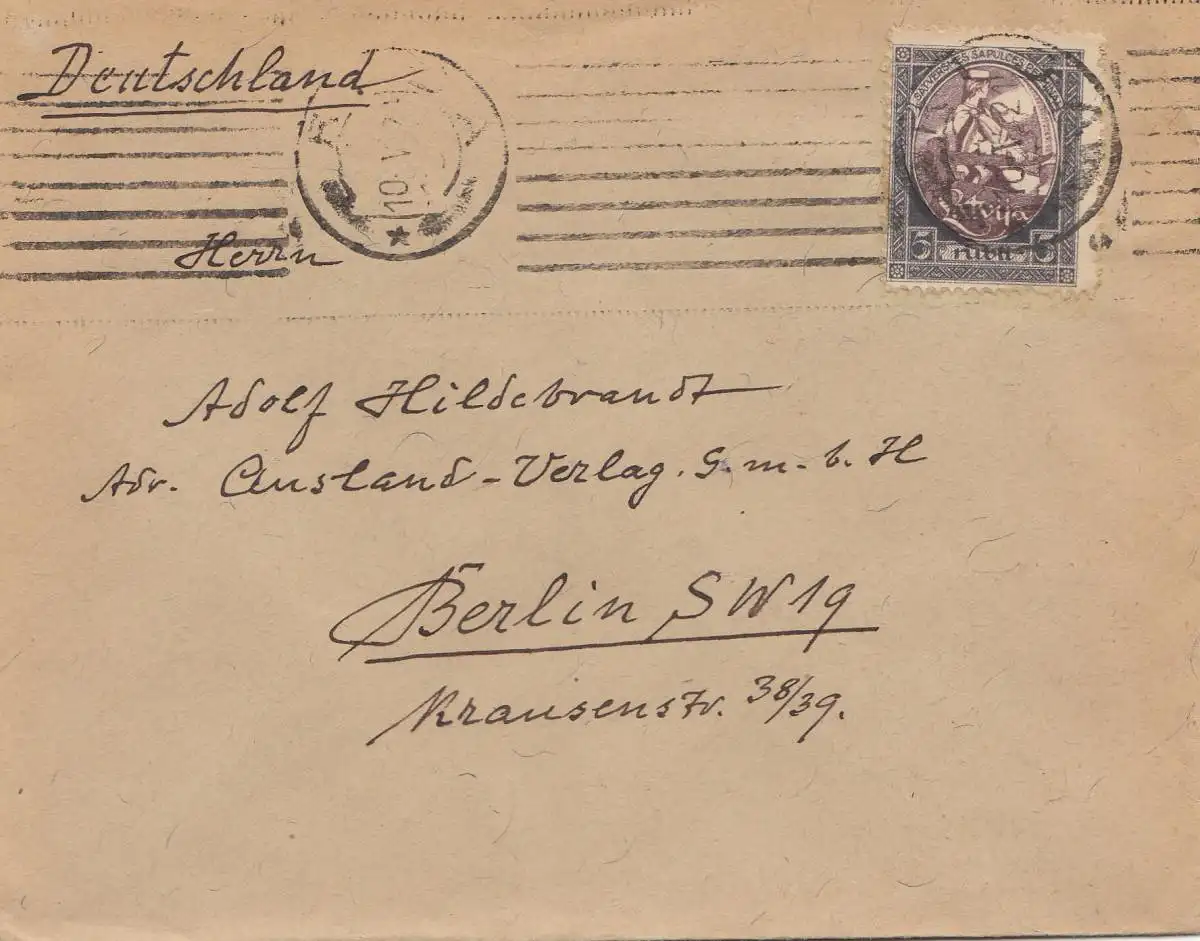 Deutschland
10. V
SATVERSMES SAPULCES
Latvija
5 RUBĻI 5
Herrn
Adolf Hildebrandt
Adr. Ausland-Verlag. G. m. b. H
Berlin SW 19
Krausenstr. 38/39.